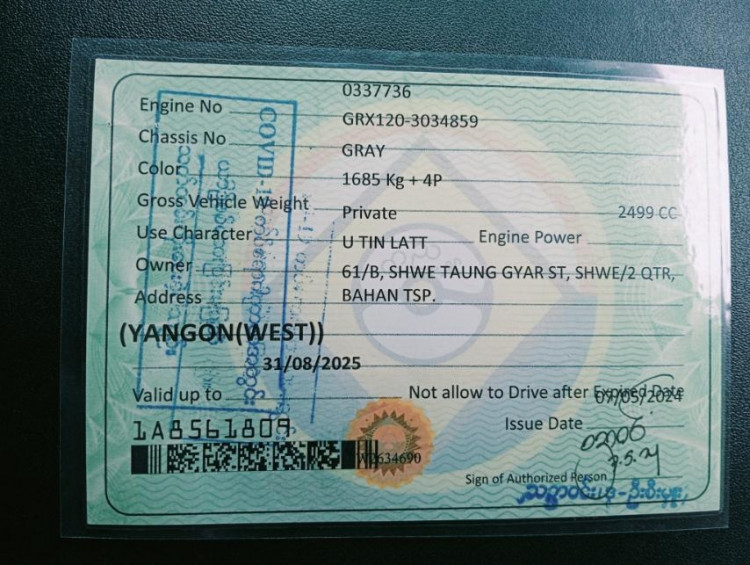 0337736
Engine No
GRX120-3034859
Chassis No
GRAY
Color
1685 Kg + 4P
Gross Vehicle Weight
Private 2499 CC
Use Character Engine Power
U TIN LATT
Owner
61/B, SHWE TAUNG GYAR ST, SHWE/2 QTR,
Address
BAHAN TSP.
(YANGON(WEST))
31/08/2025
Valid up to Not allow to Drive after Expired Date
07/05/2024
Issue Date
1A8561809
W2634690
Sign of Authorized Person
COVID-19